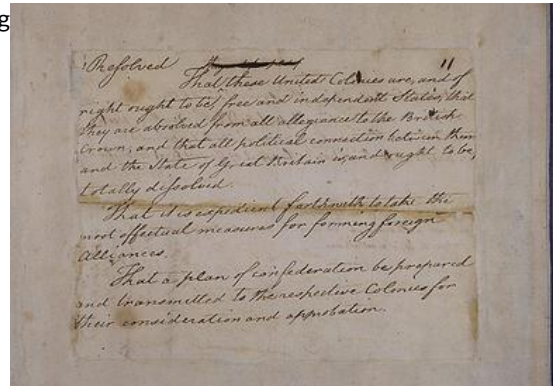 g
Resolved 11
That these United Colonies are, and of
right ought to be, free and independent States, that
they are absolved from all allegiance to the British
Crown, and that all political connection between them
and the State of Great Britain is, and ought to be,
totally dissolved.
That it is expedient forthwith to take the
most effectual measures for forming foreign
Alliances.
That a plan of confederation be prepared
and transmitted to the respective Colonies for
their consideration and approbation.